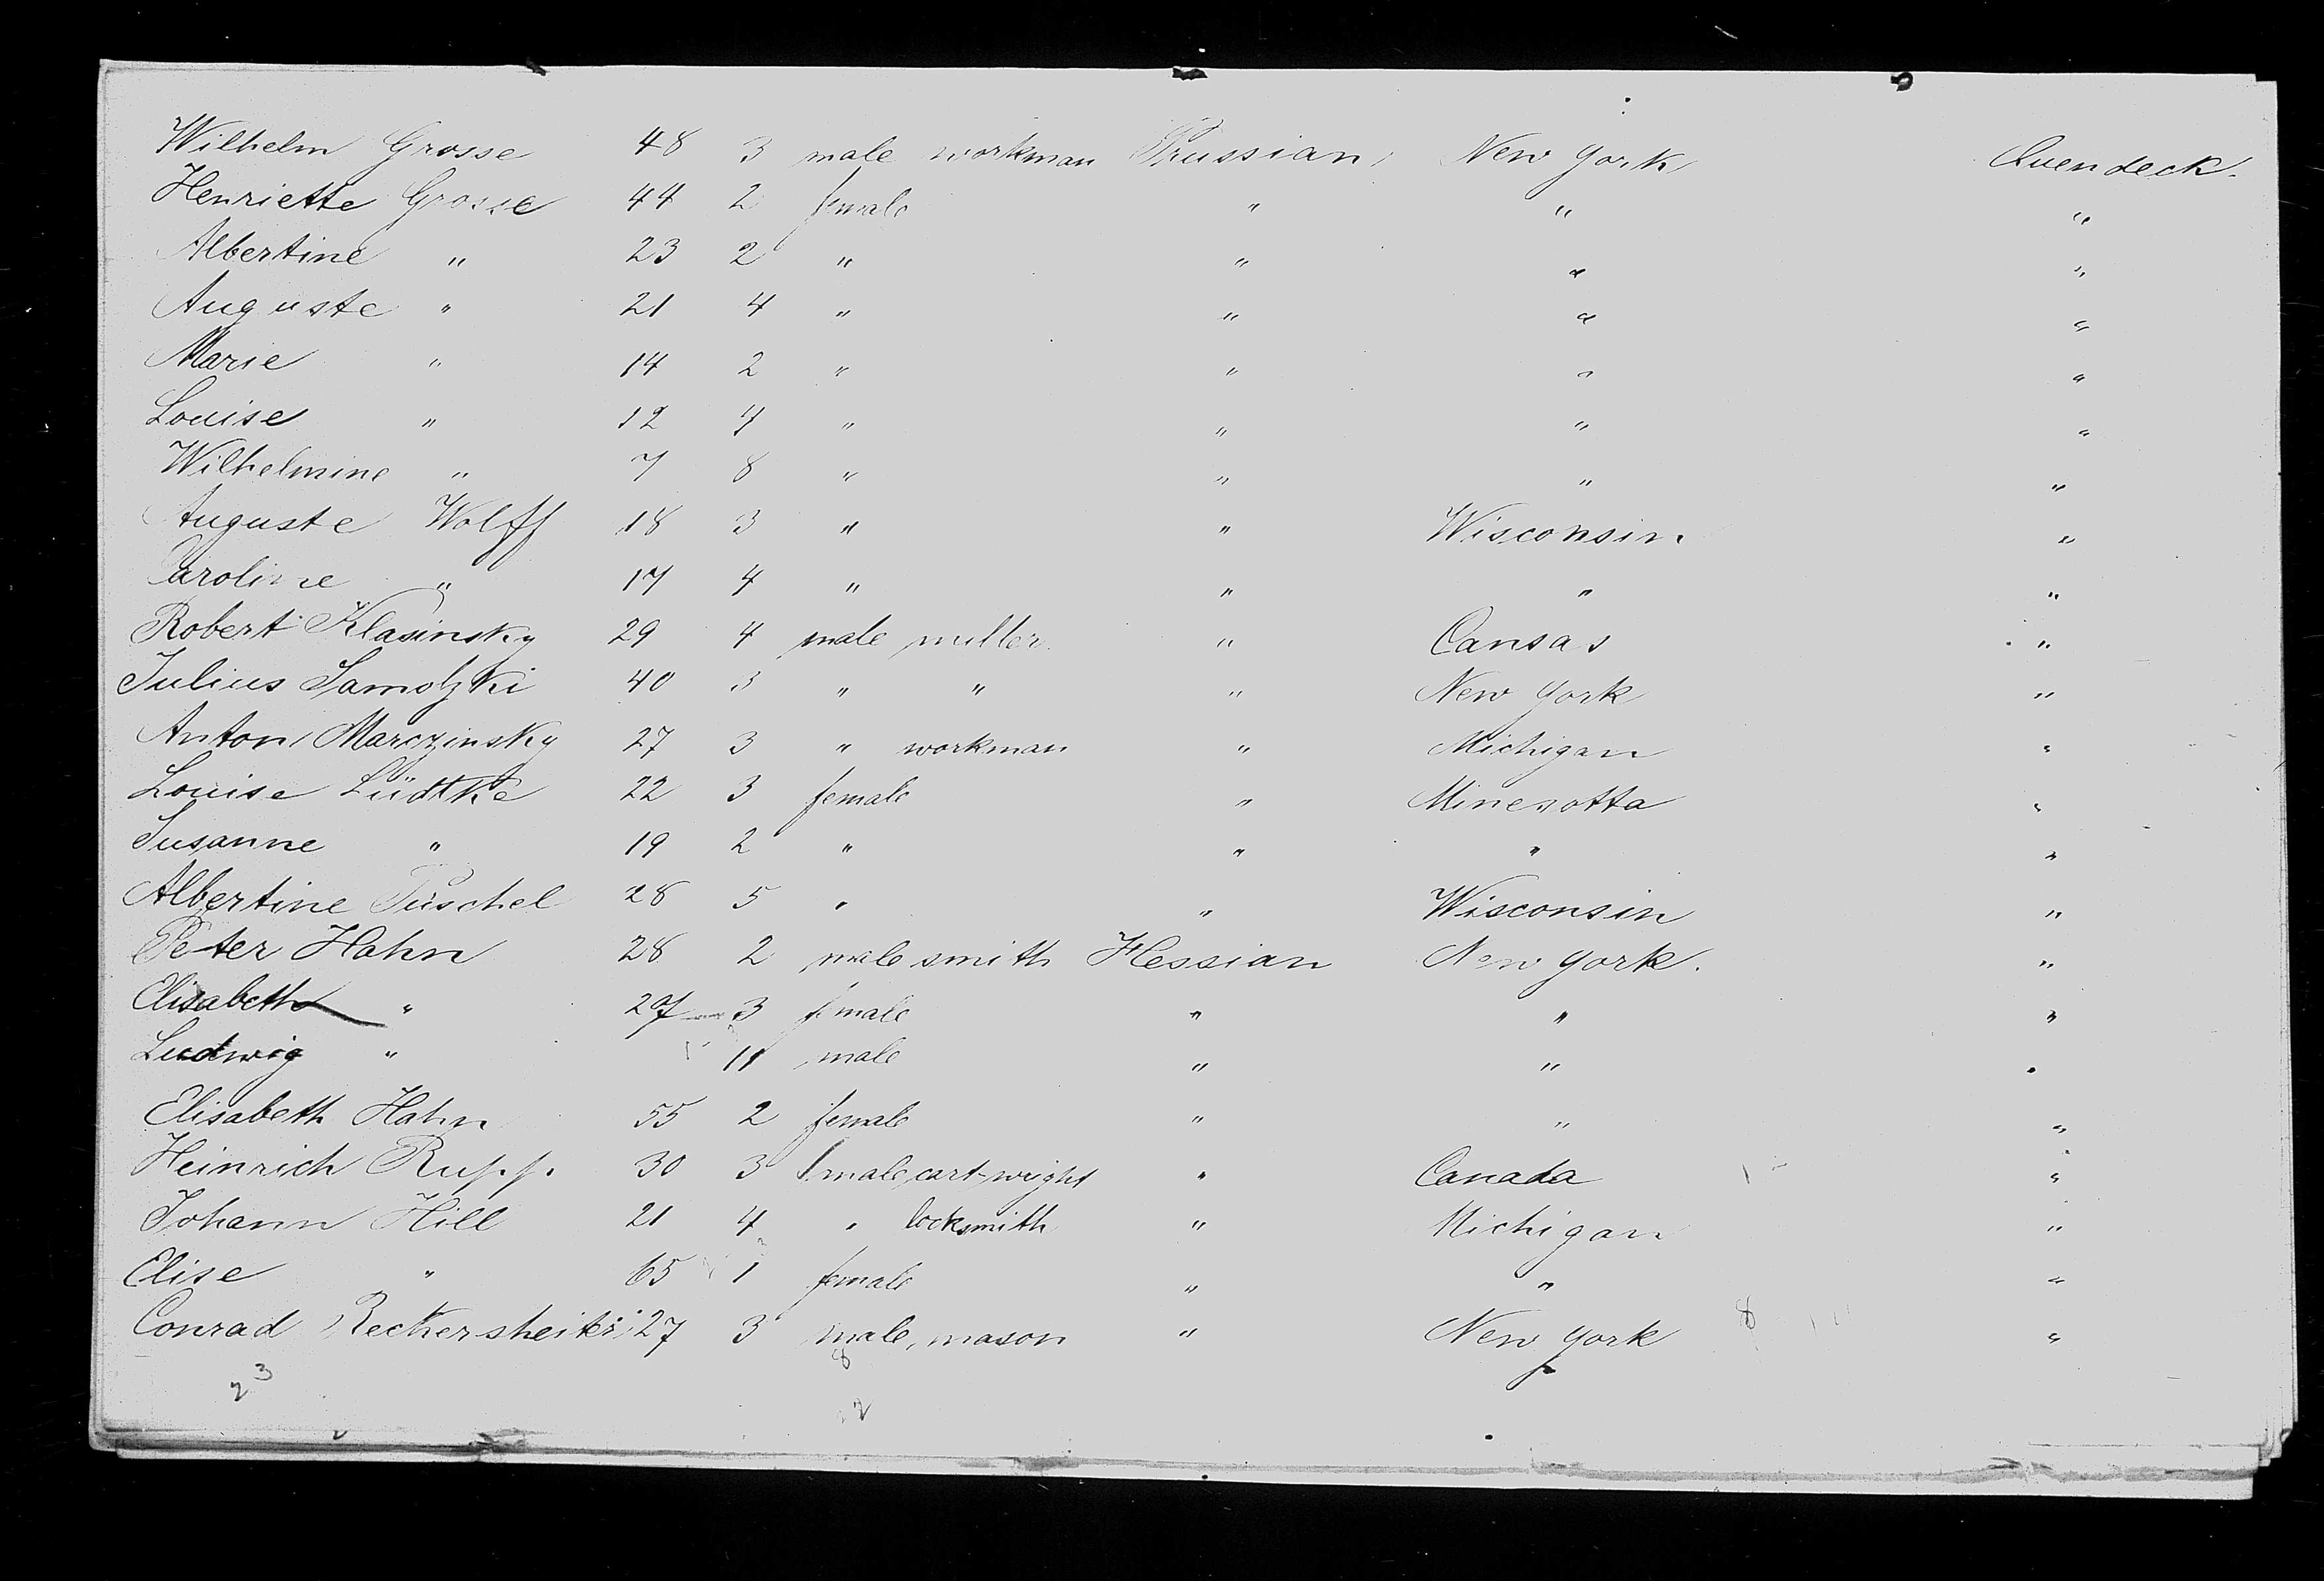 Wilhelm Grosse 48 3 male workman Prussian New York Ovendeck.
Henriette Grosse 44 2 female " " "
Albertine " 23 2 " " " "
Auguste " 21 4 " " " "
Marie " 14 2 " " " "
Louise " 12 4 " " " "
Wilhelmine " 7 8 " " " "
Auguste Wolff 18 3 " " Wisconsin "
Caroline " 17 4 " " " "
Robert Klasinsky 29 4 male miller " Cansas "
Julius Samolzki 40 3 " " " New York "
Anton Marczinsky 27 3 " workman " Michigan "
Louise Lüdtke 22 3 female " Minesotta "
Susanne " 19 2 " " " "
Albertine Püschel 28 5 " " Wisconsin "
Peter Hahn 28 2 male smith Hessian New York. "
Elisabeth " 27 3 female " " "
Ludwig " 11 male " " "
Elisabeth Hahn 55 2 female " " "
Heinrich Rupp. 30 3 male, cart-wright " Canada "
Johann Hill 21 4 " locksmith " Michigan "
Elise " 65 1 female " " "
Conrad 27 3 male, mason " New York "
23